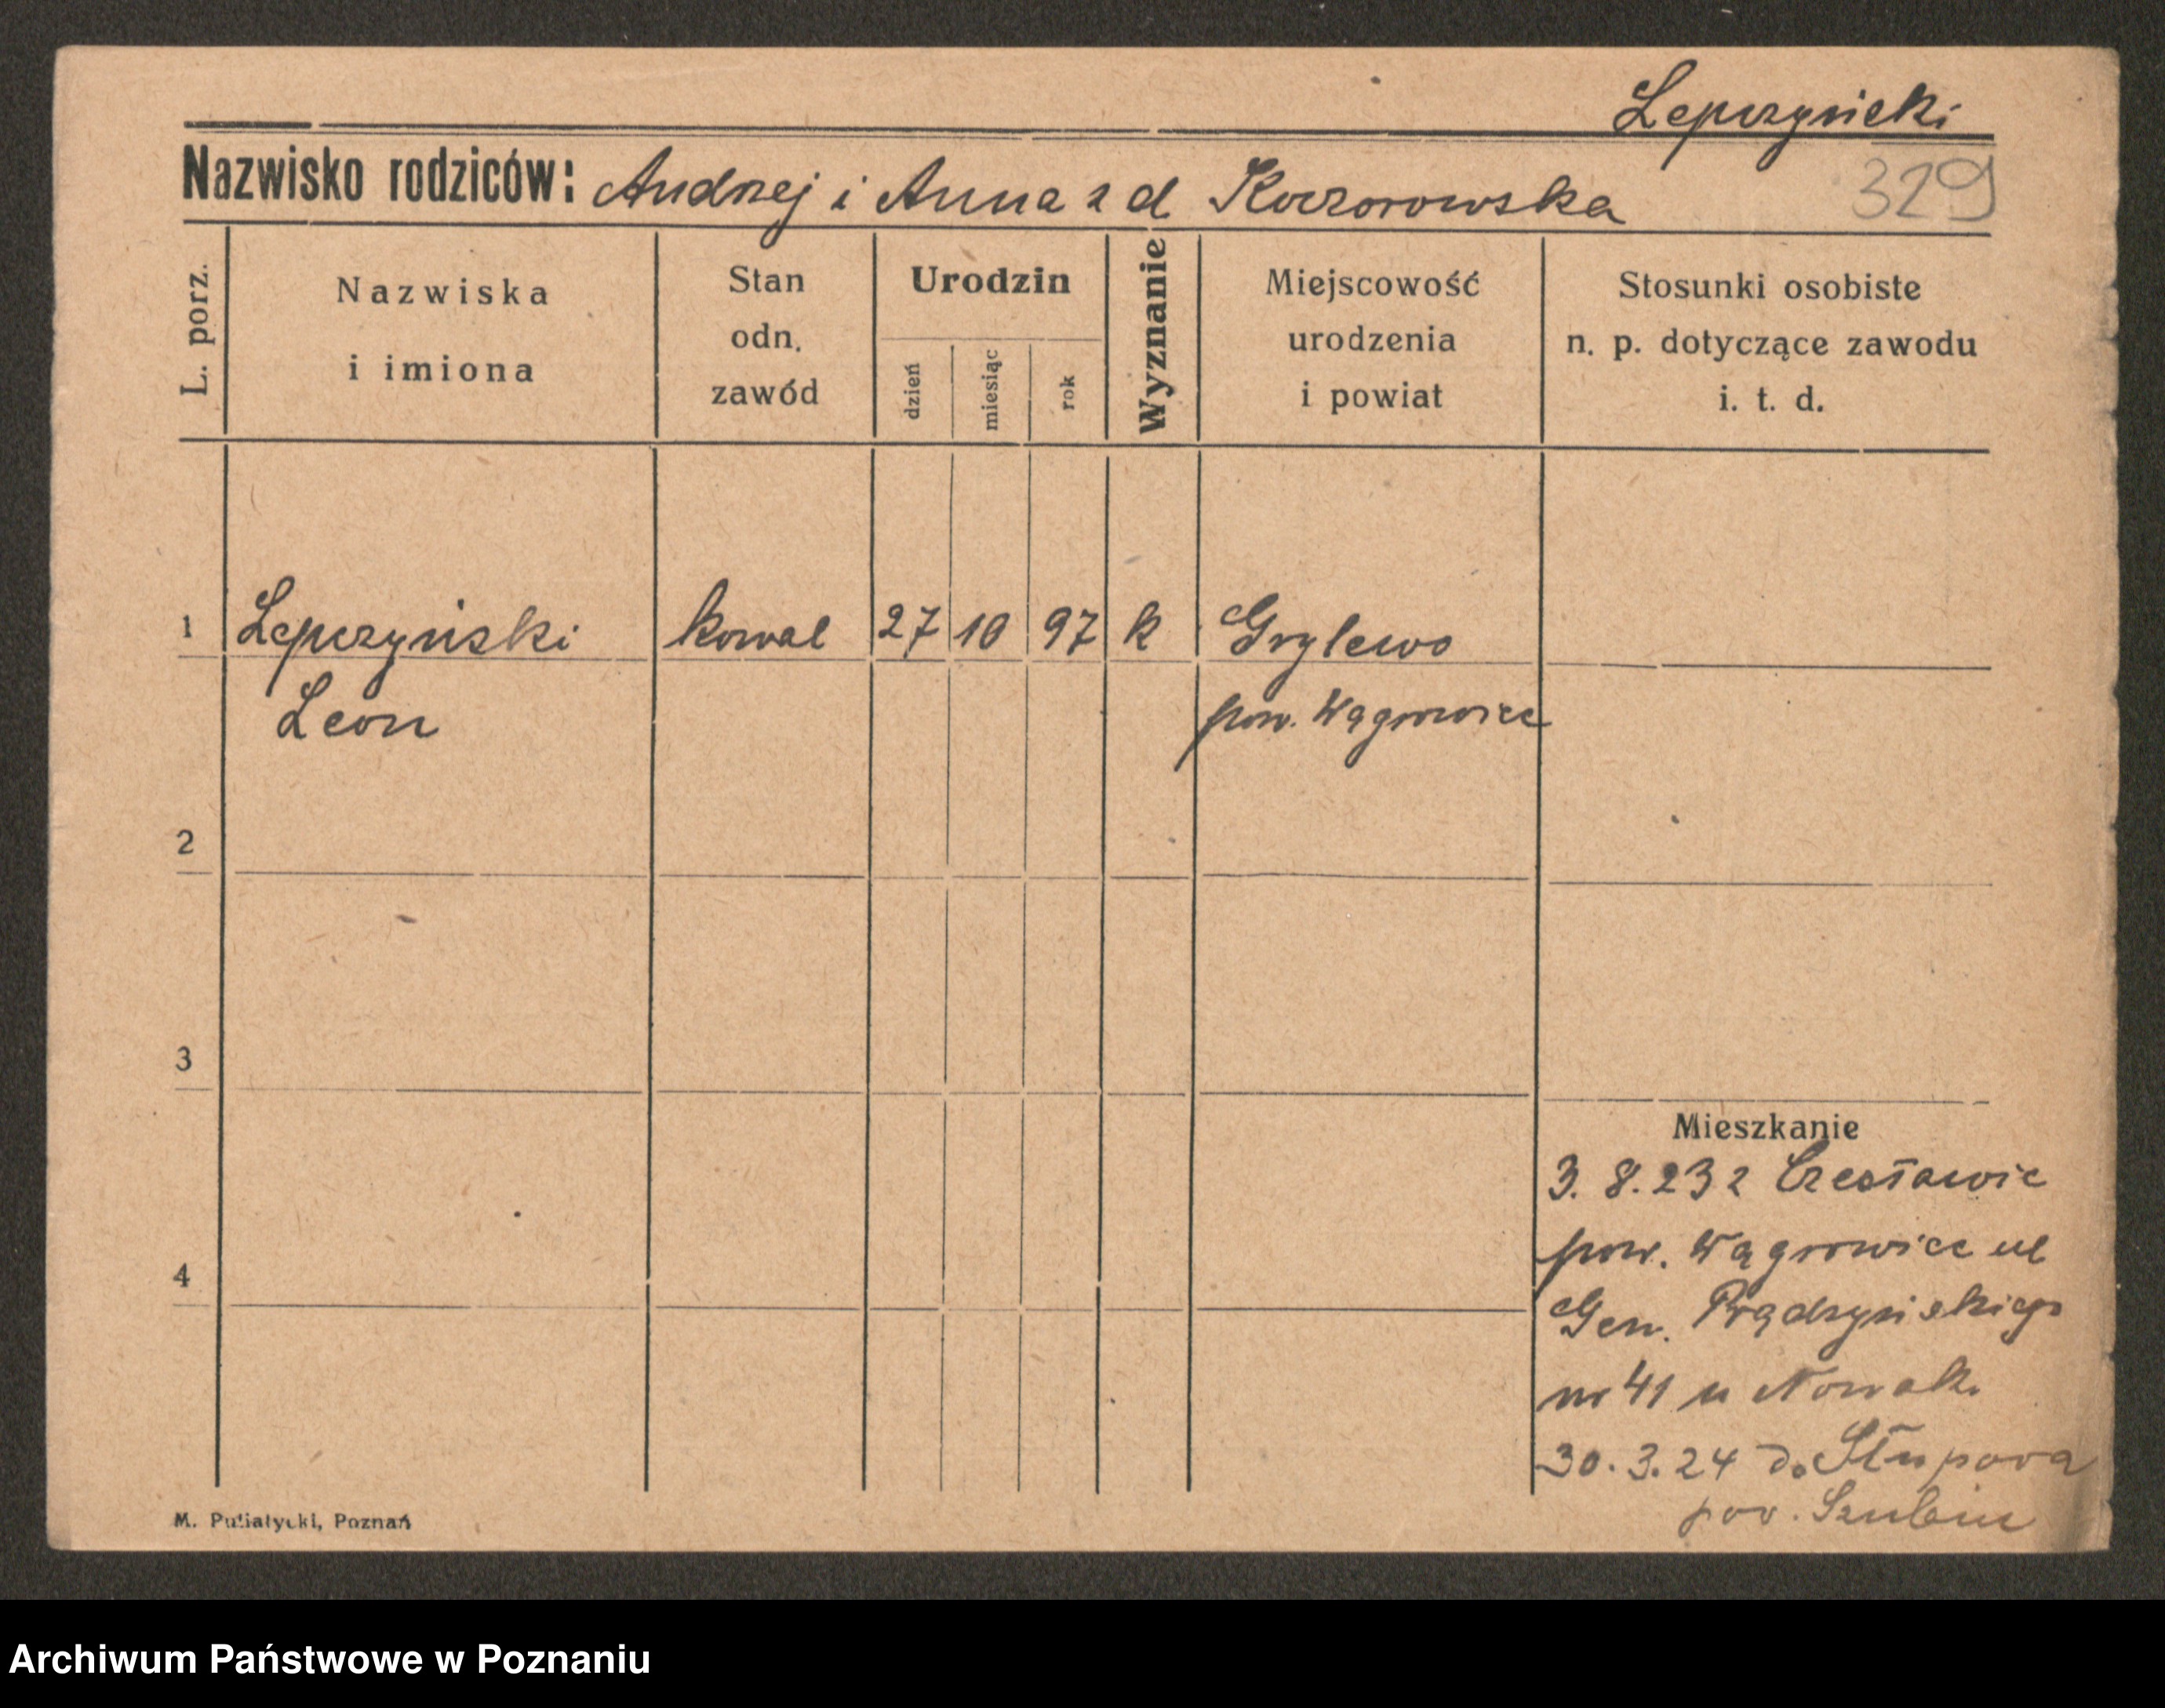 Lepczyński
Nazwisko rodziców: Andrzej i Anna z d Koczorowska
329
L. porz.
Nazwiska
i imiona
Stan
odn.
zawód
Urodzin
dzień
miesiąc
rok
Wyznanie
Miejscowość
urodzenia
i powiat
Stosunki osobiste
n. p. dotyczące zawodu
i. t. d.
1 Lepczyński kowal 27 10 97 k Grylewo
Leon pow. Wągrowiec
2
3
Mieszkanie
3. 8. 23 z Czesławic
pow. Wągrowiec ul
4
Gen. Prądzyńskiego
nr 41 u Nowak.
30. 3. 24 do Słupova
pov. Szubin
M. Putiatycki, Poznań
Archiwum Państwowe w Poznaniu